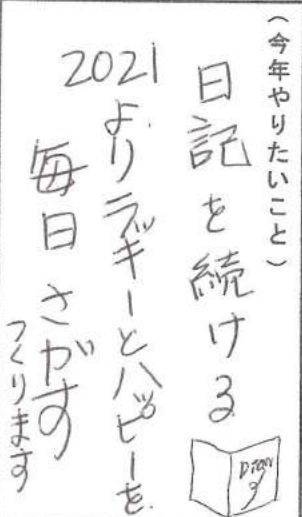 (今年やりたいこと)
日記を続ける
2021
よりラッキーとハッピーを
毎日さがす
つくります
Diary